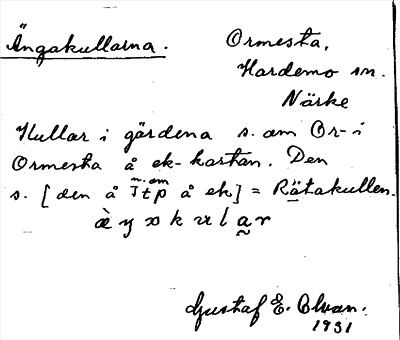 Ängakullarna. Ormesta,
Hardemo sn.
Närke
Kullar i gärdena s. om Or- i
Ormesta å ek-kartan. Den
s. [den å n. om Itp å ek] = Rätakullen.
Gustaf E. Olvan.
1931